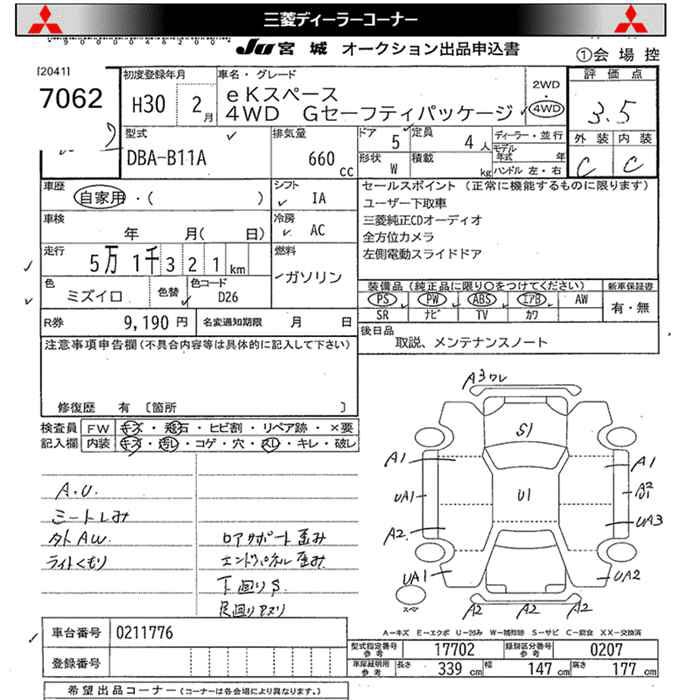 三菱ディーラーコーナー
JU 宮城 オークション出品申込書
①会場控
[2041]
7062
初度登録年月
H30 2月
車名・グレード
eKスペース
4WD Gセーフティパッケージ
2WD
・
4WD
評価点
3.5
外装 内装
C C
型式
DBA-B11A
排気量
660 cc
ドア 5
定員 4人
形状 W
積載 kg
ディーラー・並行
モデル年式 年
ハンドル 左・右
車歴
自家用・( )
シフト
IA
車検
年 月( 日)
冷房
AC
走行
5万1千321km
燃料
ガソリン
色
ミズイロ
色替
色コード
D26
R券 9,190円
名変通知期限 月 日
セールスポイント (正常に機能するものに限ります)
ユーザー下取車
三菱純正CDオーディオ
全方位カメラ
左側電動スライドドア
装備品(純正品に限り○をつけてください)
PS PW ABS エアB AW
SR ナビ TV カワ
新車保証書
有・無
後日品
取説、メンテナンスノート
注意事項申告欄(不具合内容等は具体的に記入して下さい)
修復歴 有 〔箇所 〕
検査員記入欄
FW キズ・飛石・ヒビ割・リペア跡・×要
内装 キズ・汚レ・コゲ・穴・スレ・キレ・破レ
A.U.
ミートしみ
外AW
ライトくもり
ロアサポート歪み
エンドパネル歪み
下回りS
足回りサスリ
A3ワレ
S1
A1 A1
UA1 U1
A2 UA3
UA1 UA2
A2 A2 A2
A-キズ E-エクボ U-凹み W-補修跡 S-サビ C-腐食 XX-交換済
車台番号 0211776
登録番号
型式指定番号 参考 17702
類別区分番号 参考 0207
車庫証明用 参考 長さ 339 cm 幅 147 cm 高さ 177 cm
希望出品コーナー(コーナーは各会場により異なります)